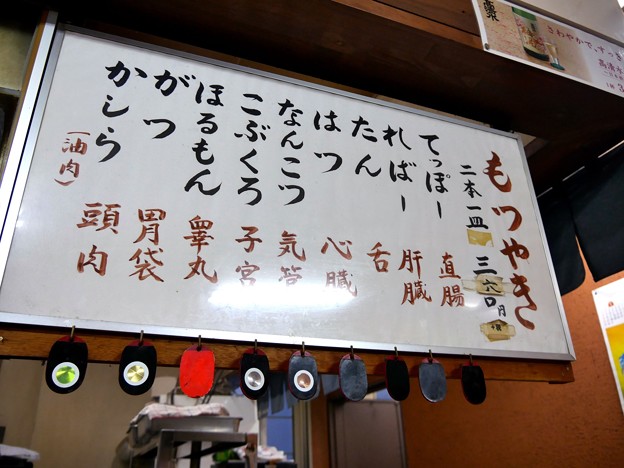 もつやき
二本一皿
三六〇円
てっぽー 直腸
ればー 肝臓
たん 舌
はつ 心臓
なんこつ 気管
こぶくろ 子宮
ほるもん 睾丸
がつ 胃袋
かしら 頭肉
(油肉)
さわやかで、すっき